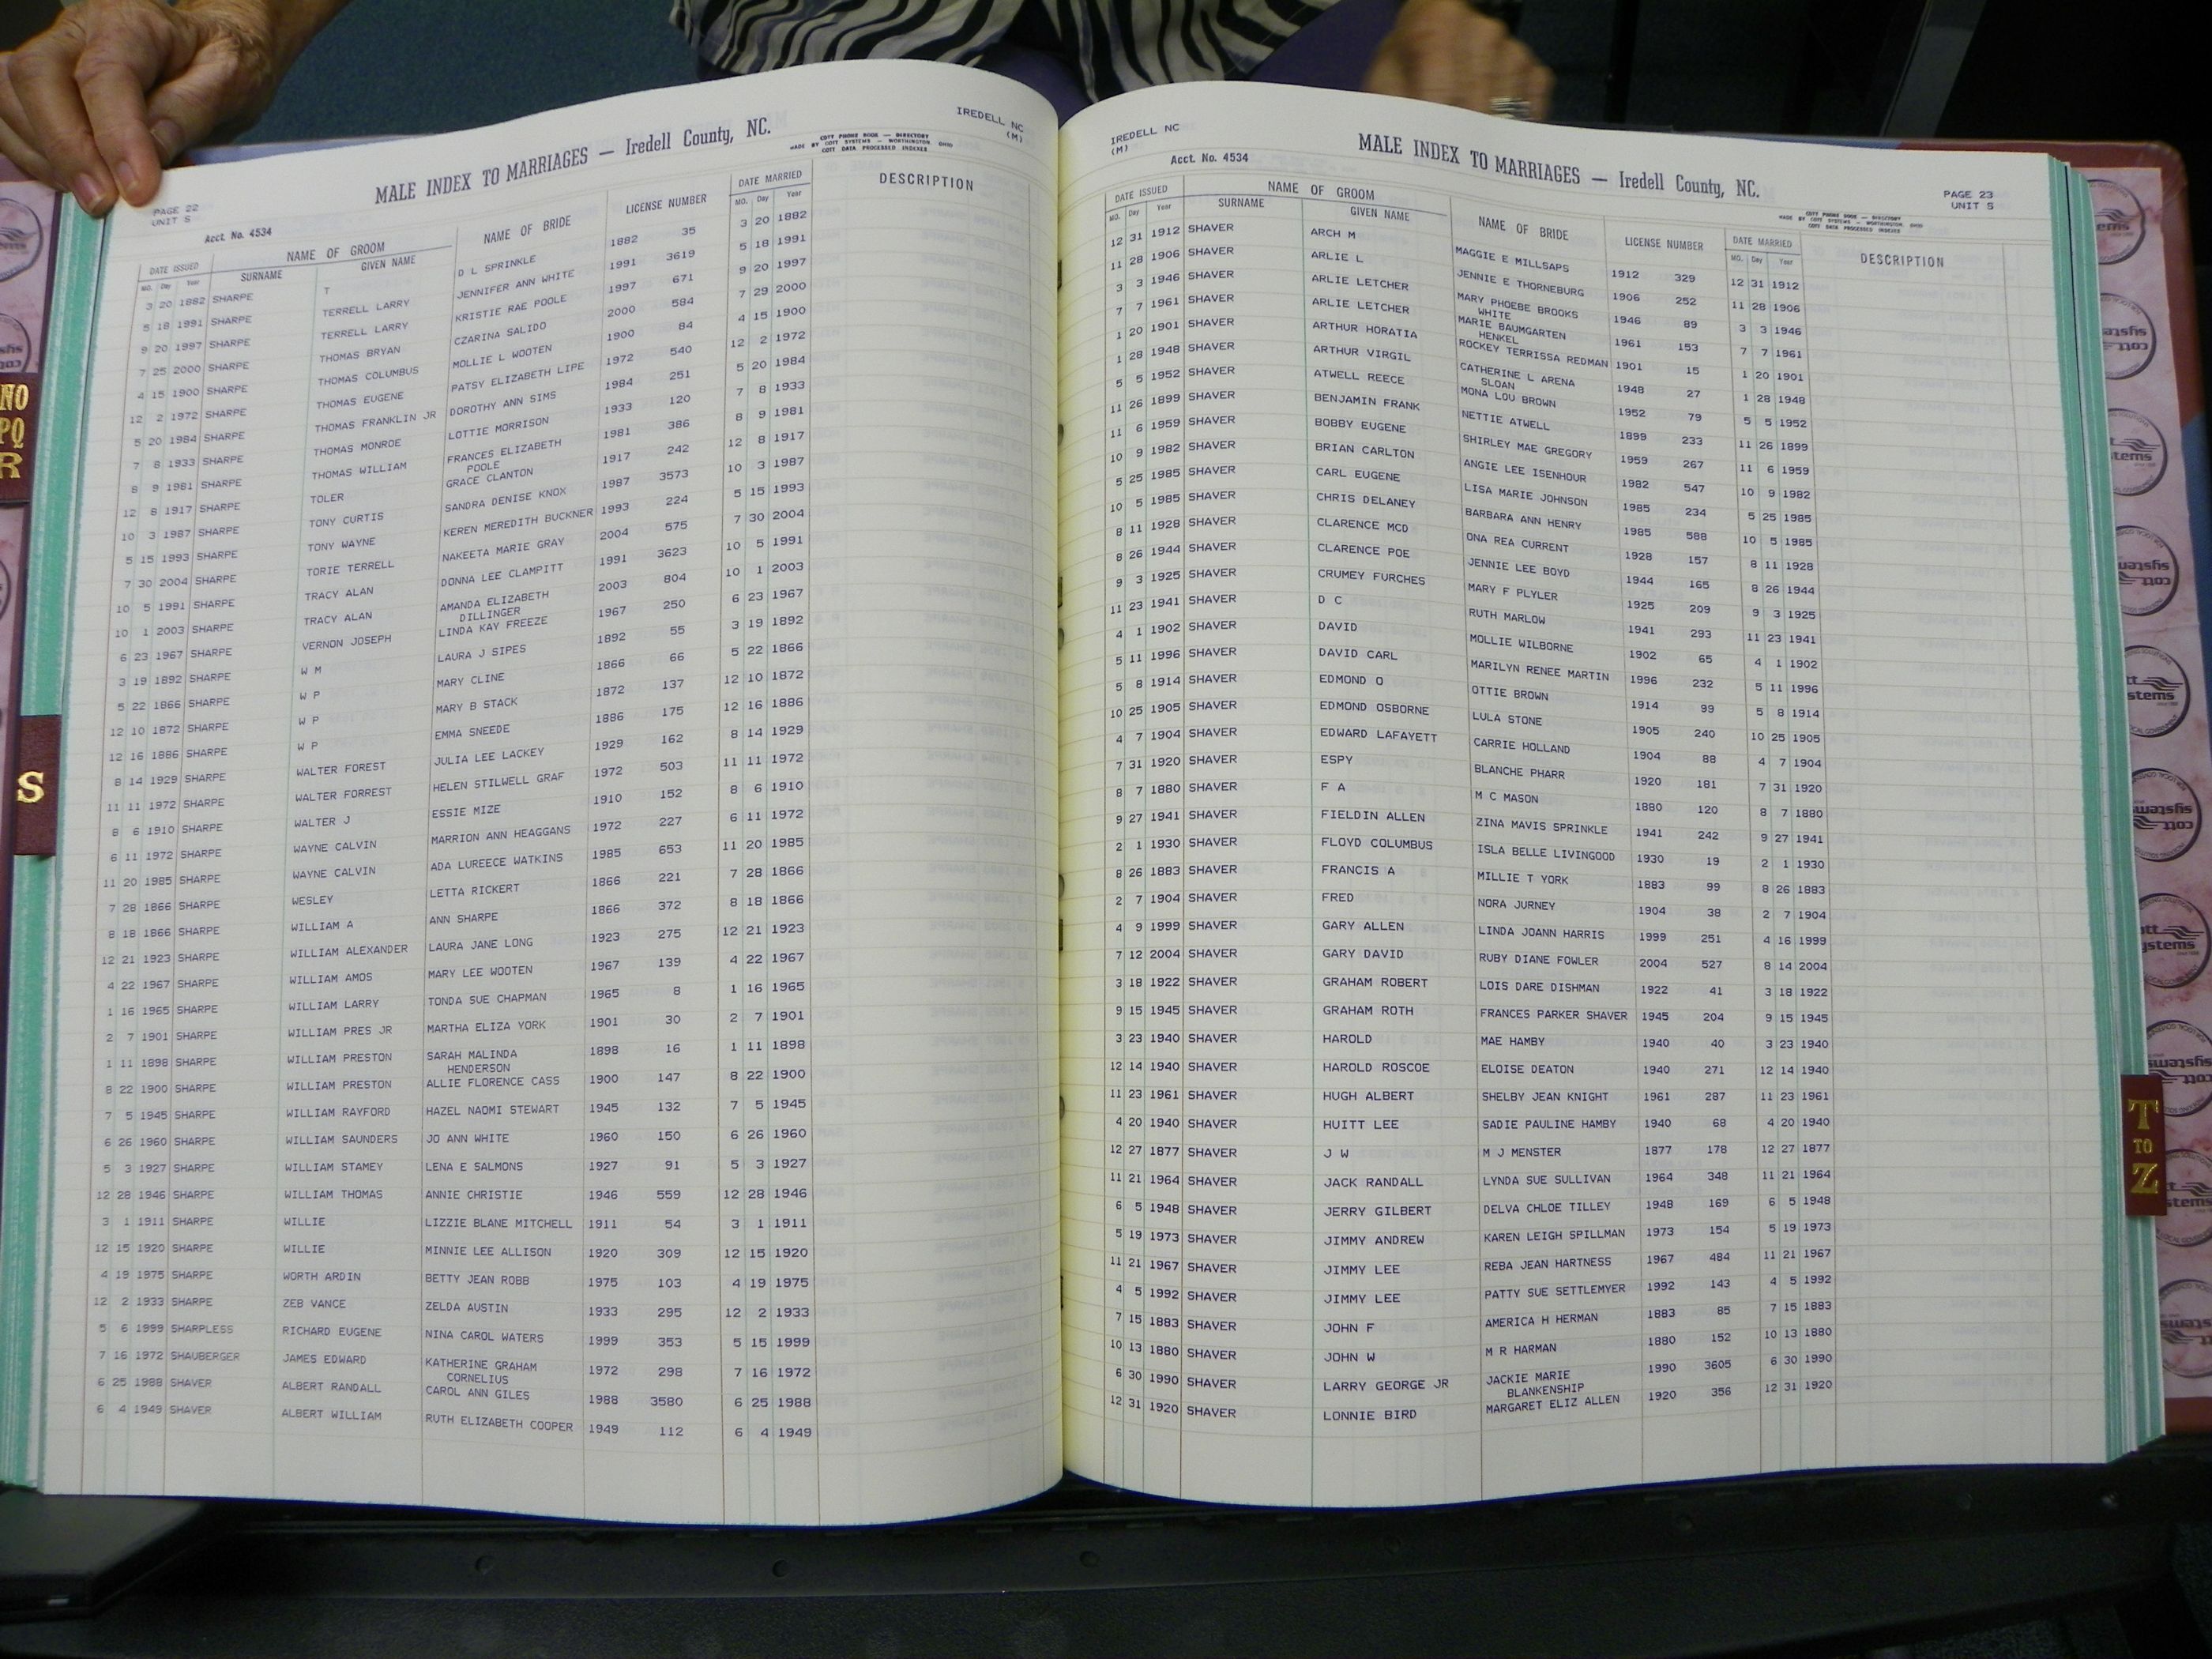 IREDELL NC
(M)
MALE INDEX TO MARRIAGES — Iredell County, NC.
COTT PHONE BOOK — DIRECTORY
MADE BY COTT SYSTEMS — WORTHINGTON, OHIO
COTT DATA PROCESSED INDEXES
PAGE 22
UNIT S
Acct. No. 4534
DATE ISSUED NAME OF GROOM NAME OF BRIDE LICENSE NUMBER DATE MARRIED DESCRIPTION
MO. Day Year SURNAME GIVEN NAME MO. Day Year
3 20 1882 SHARPE T D L SPRINKLE 1882 35 3 20 1882
5 18 1991 SHARPE TERRELL LARRY JENNIFER ANN WHITE 1991 3619 5 18 1991
9 20 1997 SHARPE TERRELL LARRY KRISTIE RAE POOLE 1997 671 9 20 1997
7 25 2000 SHARPE THOMAS BRYAN CZARINA SALIDO 2000 584 7 29 2000
4 15 1900 SHARPE THOMAS COLUMBUS MOLLIE L WOOTEN 1900 84 4 15 1900
12 2 1972 SHARPE THOMAS EUGENE PATSY ELIZABETH LIPE 1972 540 12 2 1972
5 20 1984 SHARPE THOMAS FRANKLIN JR DOROTHY ANN SIMS 1984 251 5 20 1984
7 8 1933 SHARPE THOMAS MONROE LOTTIE MORRISON 1933 120 7 8 1933
8 9 1981 SHARPE THOMAS WILLIAM FRANCES ELIZABETH 1981 386 8 9 1981
POOLE
12 8 1917 SHARPE TOLER GRACE CLANTON 1917 242 12 8 1917
10 3 1987 SHARPE TONY CURTIS SANDRA DENISE KNOX 1987 3573 10 3 1987
5 15 1993 SHARPE TONY WAYNE KEREN MEREDITH BUCKNER 1993 224 5 15 1993
7 30 2004 SHARPE TORIE TERRELL NAKEETA MARIE GRAY 2004 575 7 30 2004
10 5 1991 SHARPE TRACY ALAN DONNA LEE CLAMPITT 1991 3623 10 5 1991
10 1 2003 SHARPE TRACY ALAN AMANDA ELIZABETH 2003 804 10 1 2003
DILLINGER
6 23 1967 SHARPE VERNON JOSEPH LINDA KAY FREEZE 1967 250 6 23 1967
3 19 1892 SHARPE W M LAURA J SIPES 1892 55 3 19 1892
5 22 1866 SHARPE W P MARY CLINE 1866 66 5 22 1866
12 10 1872 SHARPE W P MARY B STACK 1872 137 12 10 1872
12 16 1886 SHARPE W P EMMA SNEEDE 1886 175 12 16 1886
8 14 1929 SHARPE WALTER FOREST JULIA LEE LACKEY 1929 162 8 14 1929
11 11 1972 SHARPE WALTER FORREST HELEN STILWELL GRAF 1972 503 11 11 1972
8 6 1910 SHARPE WALTER J ESSIE MIZE 1910 152 8 6 1910
6 11 1972 SHARPE WAYNE CALVIN MARRION ANN HEAGGANS 1972 227 6 11 1972
11 20 1985 SHARPE WAYNE CALVIN ADA LUREECE WATKINS 1985 653 11 20 1985
7 28 1866 SHARPE WESLEY LETTA RICKERT 1866 221 7 28 1866
8 18 1866 SHARPE WILLIAM A ANN SHARPE 1866 372 8 18 1866
12 21 1923 SHARPE WILLIAM ALEXANDER LAURA JANE LONG 1923 275 12 21 1923
4 22 1967 SHARPE WILLIAM AMOS MARY LEE WOOTEN 1967 139 4 22 1967
1 16 1965 SHARPE WILLIAM LARRY TONDA SUE CHAPMAN 1965 8 1 16 1965
2 7 1901 SHARPE WILLIAM PRES JR MARTHA ELIZA YORK 1901 30 2 7 1901
1 11 1898 SHARPE WILLIAM PRESTON SARAH MALINDA 1898 16 1 11 1898
HENDERSON
8 22 1900 SHARPE WILLIAM PRESTON ALLIE FLORENCE CASS 1900 147 8 22 1900
7 5 1945 SHARPE WILLIAM RAYFORD HAZEL NAOMI STEWART 1945 132 7 5 1945
6 26 1960 SHARPE WILLIAM SAUNDERS JO ANN WHITE 1960 150 6 26 1960
5 3 1927 SHARPE WILLIAM STAMEY LENA E SALMONS 1927 91 5 3 1927
12 28 1946 SHARPE WILLIAM THOMAS ANNIE CHRISTIE 1946 559 12 28 1946
3 1 1911 SHARPE WILLIE LIZZIE BLANE MITCHELL 1911 54 3 1 1911
12 15 1920 SHARPE WILLIE MINNIE LEE ALLISON 1920 309 12 15 1920
4 19 1975 SHARPE WORTH ARDIN BETTY JEAN ROBB 1975 103 4 19 1975
12 2 1933 SHARPE ZEB VANCE ZELDA AUSTIN 1933 295 12 2 1933
5 6 1999 SHARPLESS RICHARD EUGENE NINA CAROL WATERS 1999 353 5 15 1999
7 16 1972 SHAUBERGER JAMES EDWARD KATHERINE GRAHAM 1972 298 7 16 1972
CORNELIUS
6 25 1988 SHAVER ALBERT RANDALL CAROL ANN GILES 1988 3580 6 25 1988
6 4 1949 SHAVER ALBERT WILLIAM RUTH ELIZABETH COOPER 1949 112 6 4 1949
IREDELL NC
(M)
Acct. No. 4534
MALE INDEX TO MARRIAGES — Iredell County, NC.
PAGE 23
UNIT S
COTT PHONE BOOK — DIRECTORY
MADE BY COTT SYSTEMS — WORTHINGTON, OHIO
COTT DATA PROCESSED INDEXES
DATE ISSUED NAME OF GROOM NAME OF BRIDE LICENSE NUMBER DATE MARRIED DESCRIPTION
MO. Day Year SURNAME GIVEN NAME MO. Day Year
12 31 1912 SHAVER ARCH M MAGGIE E MILLSAPS 1912 329 12 31 1912
11 28 1906 SHAVER ARLIE L JENNIE E THORNEBURG 1906 252 11 28 1906
3 3 1946 SHAVER ARLIE LETCHER MARY PHOEBE BROOKS 1946 89 3 3 1946
WHITE
7 7 1961 SHAVER ARLIE LETCHER MARIE BAUMGARTEN 1961 153 7 7 1961
HENKEL
1 20 1901 SHAVER ARTHUR HORATIA ROCKEY TERRISSA REDMAN 1901 15 1 20 1901
1 28 1948 SHAVER ARTHUR VIRGIL CATHERINE L ARENA 1948 27 1 28 1948
SLOAN
5 5 1952 SHAVER ATWELL REECE MONA LOU BROWN 1952 79 5 5 1952
11 26 1899 SHAVER BENJAMIN FRANK NETTIE ATWELL 1899 233 11 26 1899
11 6 1959 SHAVER BOBBY EUGENE SHIRLEY MAE GREGORY 1959 267 11 6 1959
10 9 1982 SHAVER BRIAN CARLTON ANGIE LEE ISENHOUR 1982 547 10 9 1982
5 25 1985 SHAVER CARL EUGENE LISA MARIE JOHNSON 1985 234 5 25 1985
10 5 1985 SHAVER CHRIS DELANEY BARBARA ANN HENRY 1985 588 10 5 1985
8 11 1928 SHAVER CLARENCE MCD ONA REA CURRENT 1928 157 8 11 1928
8 26 1944 SHAVER CLARENCE POE JENNIE LEE BOYD 1944 165 8 26 1944
9 3 1925 SHAVER CRUMEY FURCHES MARY F PLYLER 1925 209 9 3 1925
11 23 1941 SHAVER D C RUTH MARLOW 1941 293 11 23 1941
4 1 1902 SHAVER DAVID MOLLIE WILBORNE 1902 65 4 1 1902
5 11 1996 SHAVER DAVID CARL MARILYN RENEE MARTIN 1996 232 5 11 1996
5 8 1914 SHAVER EDMOND O OTTIE BROWN 1914 99 5 8 1914
10 25 1905 SHAVER EDMOND OSBORNE LULA STONE 1905 240 10 25 1905
4 7 1904 SHAVER EDWARD LAFAYETT CARRIE HOLLAND 1904 88 4 7 1904
7 31 1920 SHAVER ESPY BLANCHE PHARR 1920 181 7 31 1920
8 7 1880 SHAVER F A M C MASON 1880 120 8 7 1880
9 27 1941 SHAVER FIELDIN ALLEN ZINA MAVIS SPRINKLE 1941 242 9 27 1941
2 1 1930 SHAVER FLOYD COLUMBUS ISLA BELLE LIVINGOOD 1930 19 2 1 1930
8 26 1883 SHAVER FRANCIS A MILLIE T YORK 1883 99 8 26 1883
2 7 1904 SHAVER FRED NORA JURNEY 1904 38 2 7 1904
4 9 1999 SHAVER GARY ALLEN LINDA JOANN HARRIS 1999 251 4 16 1999
7 12 2004 SHAVER GARY DAVID RUBY DIANE FOWLER 2004 527 8 14 2004
3 18 1922 SHAVER GRAHAM ROBERT LOIS DARE DISHMAN 1922 41 3 18 1922
9 15 1945 SHAVER GRAHAM ROTH FRANCES PARKER SHAVER 1945 204 9 15 1945
3 23 1940 SHAVER HAROLD MAE HAMBY 1940 40 3 23 1940
12 14 1940 SHAVER HAROLD ROSCOE ELOISE DEATON 1940 271 12 14 1940
11 23 1961 SHAVER HUGH ALBERT SHELBY JEAN KNIGHT 1961 287 11 23 1961
4 20 1940 SHAVER HUITT LEE SADIE PAULINE HAMBY 1940 68 4 20 1940
12 27 1877 SHAVER J W M J MENSTER 1877 178 12 27 1877
11 21 1964 SHAVER JACK RANDALL LYNDA SUE SULLIVAN 1964 348 11 21 1964
6 5 1948 SHAVER JERRY GILBERT DELVA CHLOE TILLEY 1948 169 6 5 1948
5 19 1973 SHAVER JIMMY ANDREW KAREN LEIGH SPILLMAN 1973 154 5 19 1973
11 21 1967 SHAVER JIMMY LEE REBA JEAN HARTNESS 1967 484 11 21 1967
4 5 1992 SHAVER JIMMY LEE PATTY SUE SETTLEMYER 1992 143 4 5 1992
7 15 1883 SHAVER JOHN F AMERICA H HERMAN 1883 85 7 15 1883
10 13 1880 SHAVER JOHN W M R HARMAN 1880 152 10 13 1880
6 30 1990 SHAVER LARRY GEORGE JR JACKIE MARIE 1990 3605 6 30 1990
BLANKENSHIP
12 31 1920 SHAVER LONNIE BIRD MARGARET ELIZ ALLEN 1920 356 12 31 1920
NO
PQ
R
S
T
TO
Z